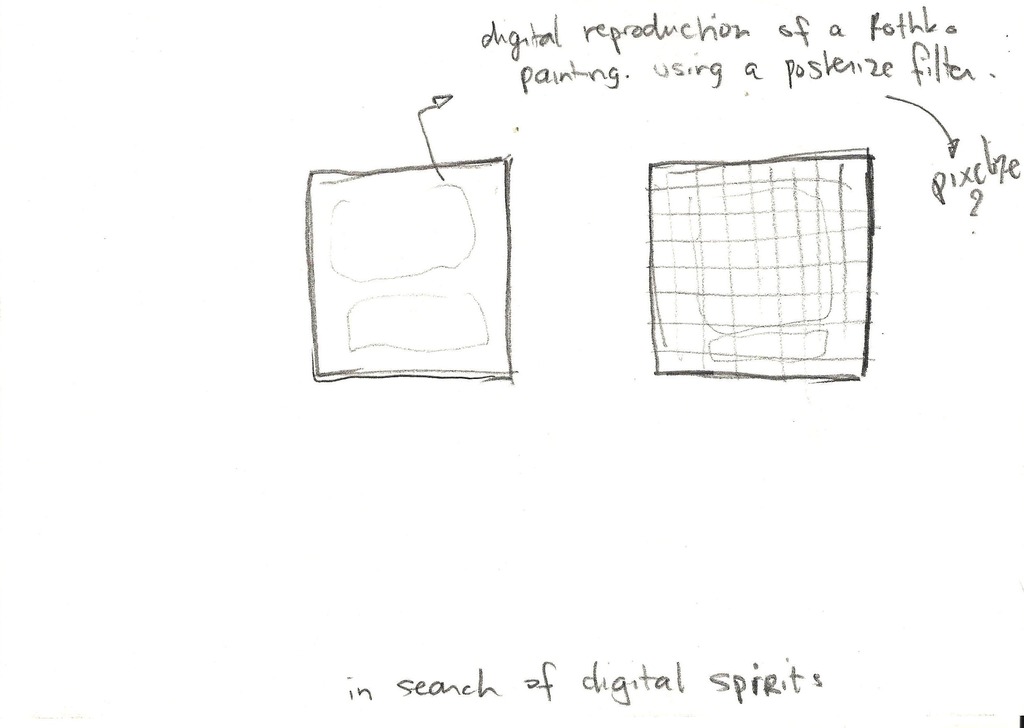 digital reproduction of a Rothko
painting. using a posterize filter.
pixelize
?
in search of digital spirits